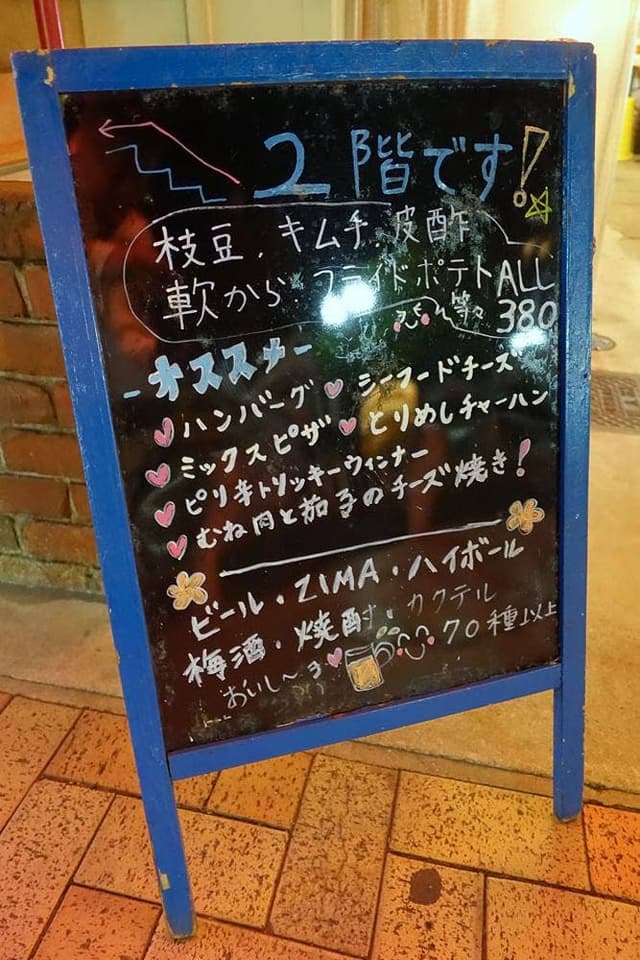 2階です!
枝豆、キムチ、皮酢
軟から、フライドポテト ALL
等々 380
-オススメ-
ハンバーグ シーフードチーズ
ミックスピザ とりめしチャーハン
ピリ辛トリッキーウィンナー
むね肉と茄子のチーズ焼き!
ビール・ZIMA・ハイボール
梅酒・焼酎・カクテル
おいし〜 70種以上